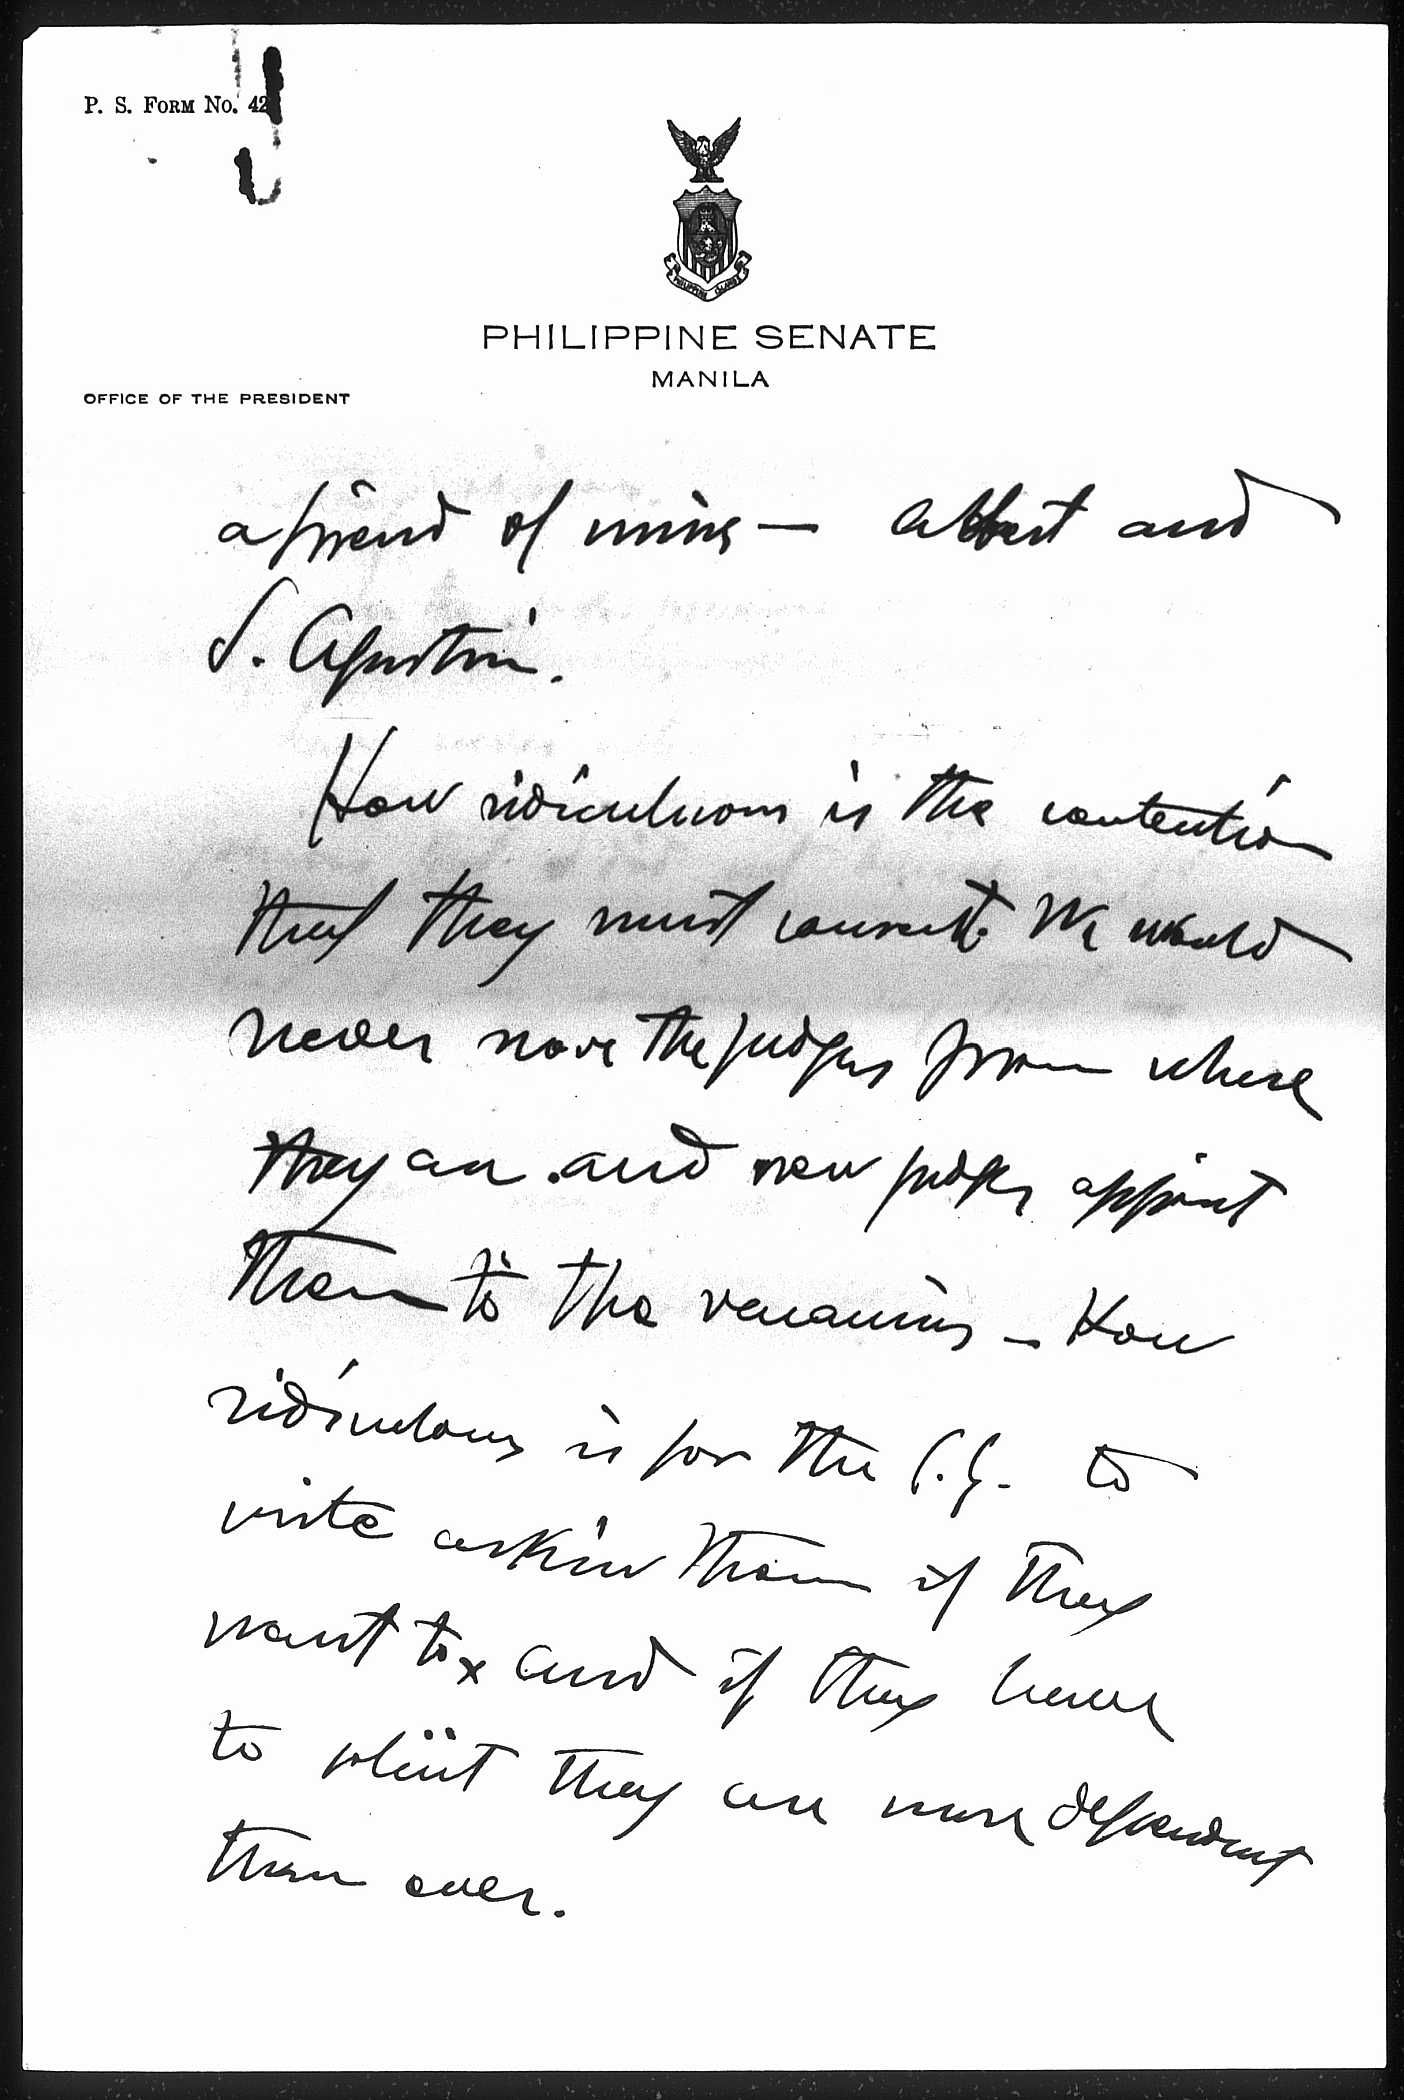 P. S. FORM NO. 42
PHILIPPINE ISLANDS
PHILIPPINE SENATE
MANILA
OFFICE OF THE PRESIDENT
a friend of mine — Albert and
S. Agustin.
How ridiculuous is the contention
that they must consent. We would
never move the judges from where
they are and new judges appoint
them to the vacancies — How
ridiculous is for the G. G. to
write askin them if they
want to x and if they have
to they are more dependent
than ever.